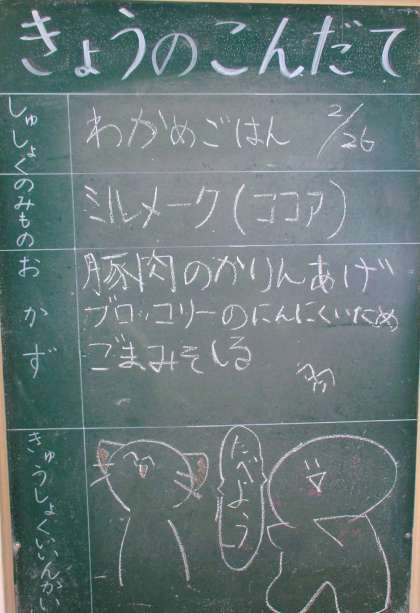 きょうのこんだて
しゅしょく
わかめごはん 2/26
のみもの
ミルメーク(ココア)
おかず
豚肉のかりんあげ
ブロッコリーのにんにくいため
ごまみそしる
きゅうしょくいいんかい
たべよう